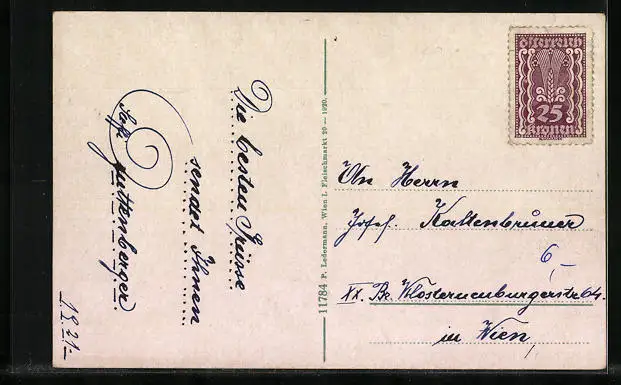 Die besten Grüsse
sendet Ihnen
Guttenberger
11784 P. Ledermann, Wien I. Fleischmarkt 20 — 1920.
Österreich
25
Kronen
An Herrn
Josef Kaltenbrunner
6,—
XX. Bz. Klosterneuburgerstr 64.
in Wien,